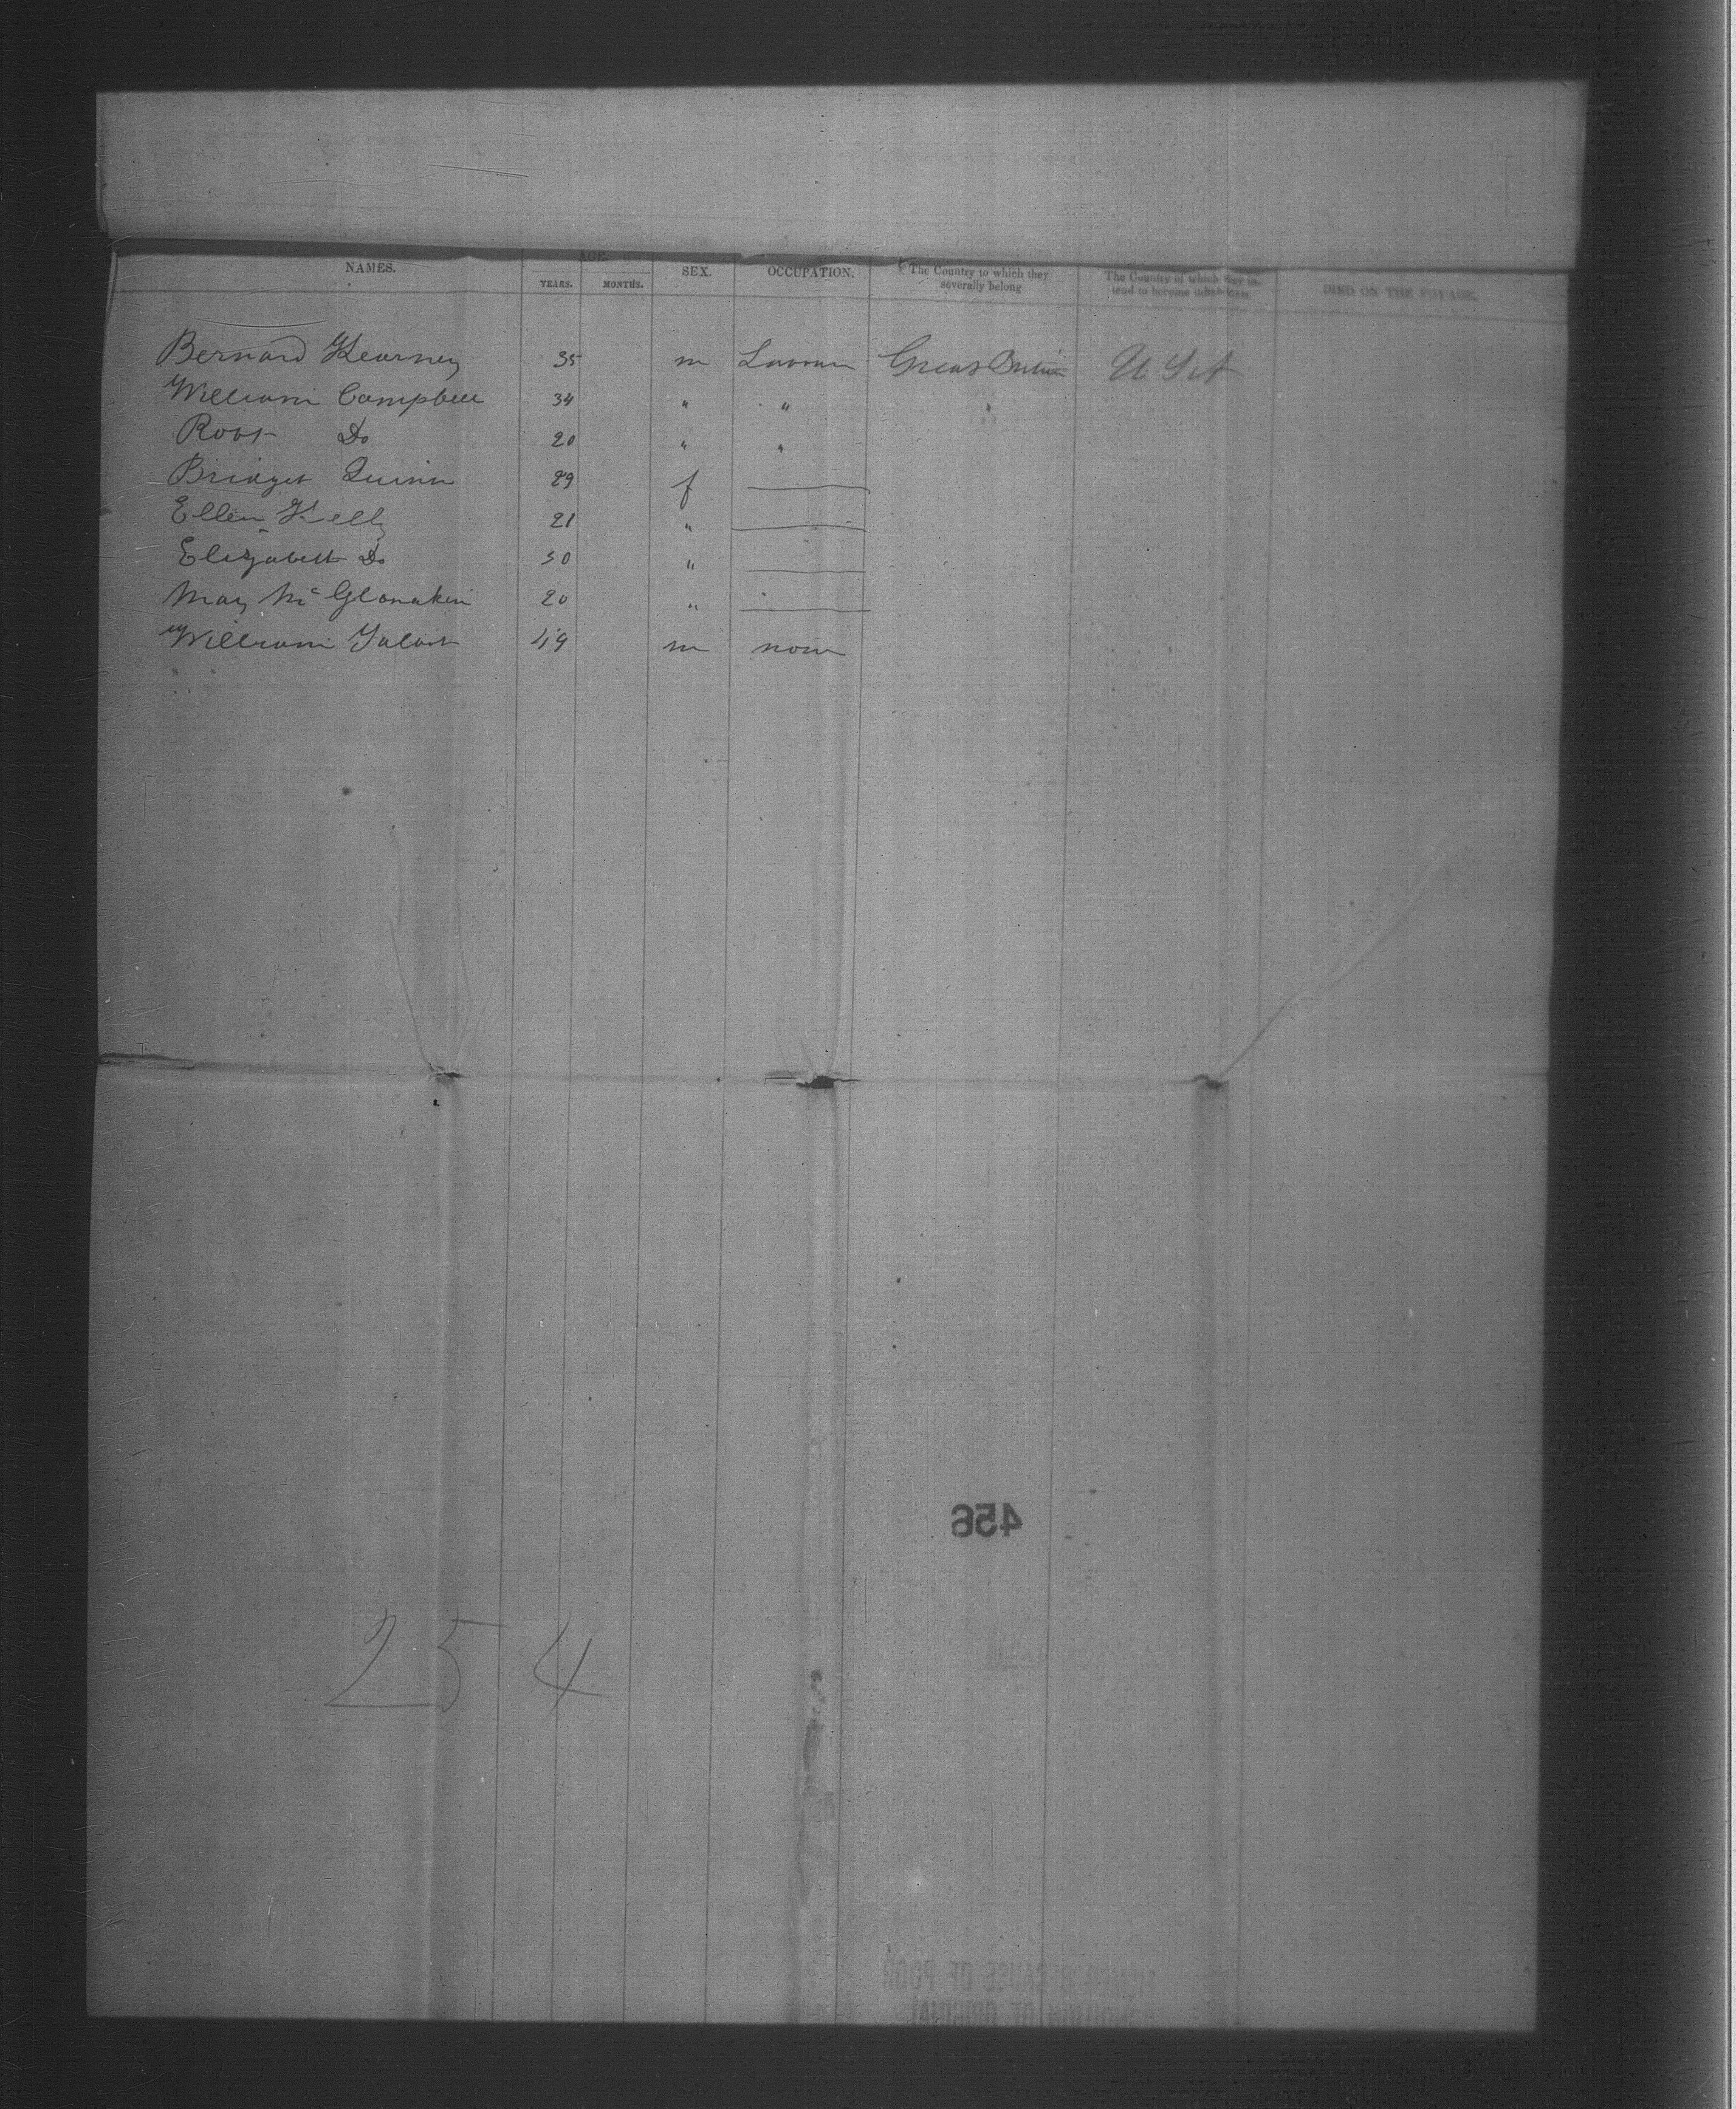 NAMES. AGE. YEARS. MONTHS. SEX. OCCUPATION. The Country to which they severally belong The Country of which they intend to become inhabitants. DIED ON THE VOYAGE.
Bernard Kearney 35 m Great Britain U S A
William Campbell 34 " " "
Robt Do 20 " "
Bridget Quinn 29 f
Ellen Kelly 21 "
Elizabeth Do 30 "
Mary Mc 20 "
William 49 m none
456
254
FILMED BECAUSE OF POOR
CONDITION OF ORIGINAL